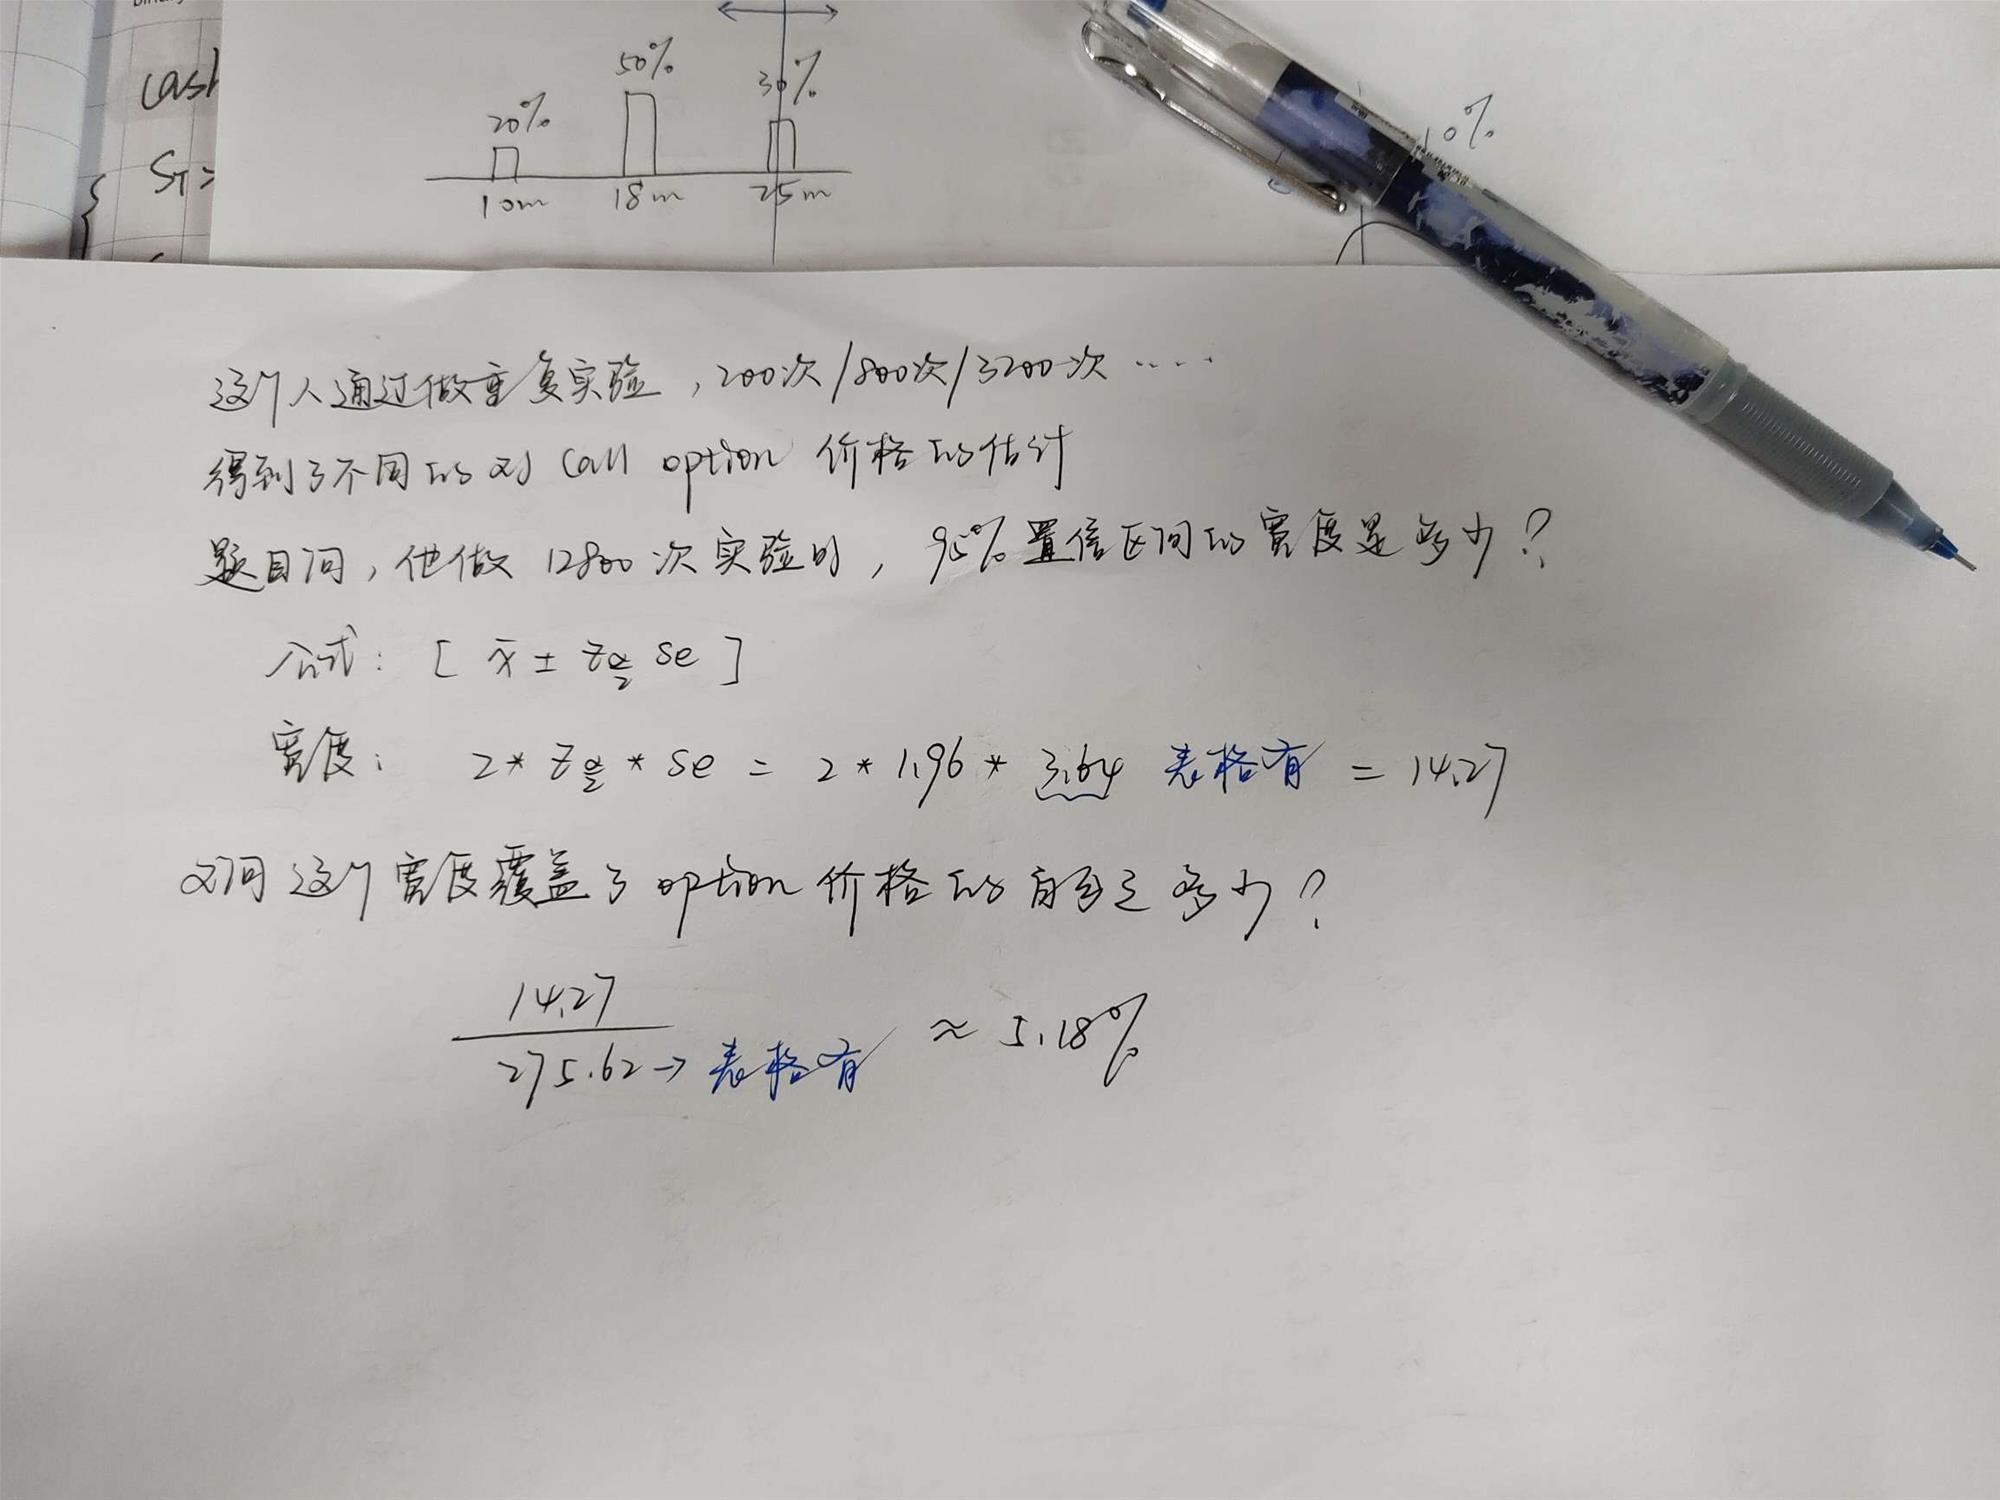 cash
S_T=
50%
20%
30%
10m 18m 25m
10%
这个人通过做重复实验，200次/800次/3200次……
得到了不同的对 call option 价格的估计
题目问，他做 12800 次实验时，95%置信区间的宽度是多少？
公式：[ x̄ ± z_{α/2} se ]
宽度：2 * z_{α/2} * se = 2 * 1.96 * 3.64 表格有 = 14.27
又问这个宽度覆盖了 option 价格的百分之多少？
14.27
275.62 → 表格有 ≈ 5.18%